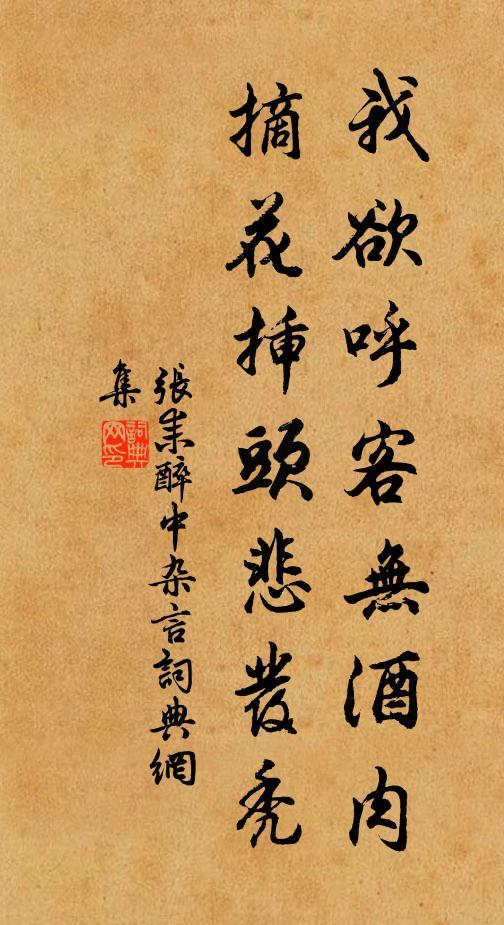 我欲呼客無酒肉
摘花挿頭悲發禿
張耒醉中杂言詞典網
集
詞典
网印